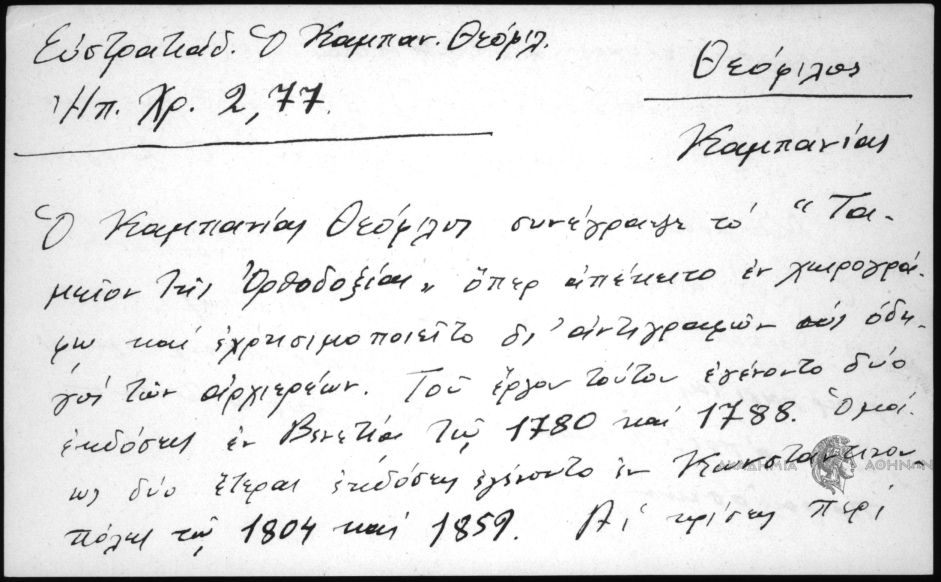 Εὐστρατιάδ. Ὁ Καμπαν. Θεόφιλ.
Ἠπ. Χρ. 2,77.
Θεόφιλος
Καμπανίας
Ὁ Καμπανίας Θεόφιλος συνέγραψε τό "Τα-
μεῖον τῆς Ὀρθοδοξίας" ὅπερ ἀπέκειτο ἐν χειρογρά-
φῳ καί ἐχρησιμοποιεῖτο δι' ἀντιγραφῶν ὡς ὁδη-
γός τῶν ἀρχιερέων. Τοῦ ἔργου τούτου ἐγένοντο δύο
ἐκδόσεις ἐν Βενετίᾳ τῷ 1780 καί 1788. Ὁμοί-
ως δύο ἕτεραι ἐκδόσεις ἐγένοντο ἐν Κωνσταντινου
πόλει τῷ 1804 καί 1859. Αἱ κρίσεις περί
ΑΚΑΔΗΜΙΑ ΑΘΗΝΩΝ